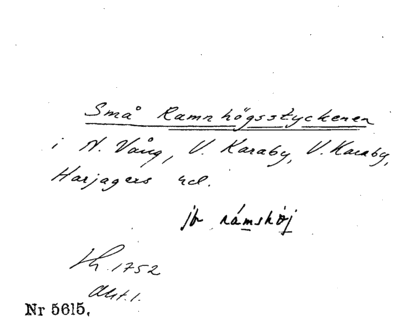 Små Ramnhögsstyckenen
i N. Vång, V. Karaby, V. Karaby,
Harjagers hd.
jb rámshöj
1752
Akt. 1.
Nr 5615.